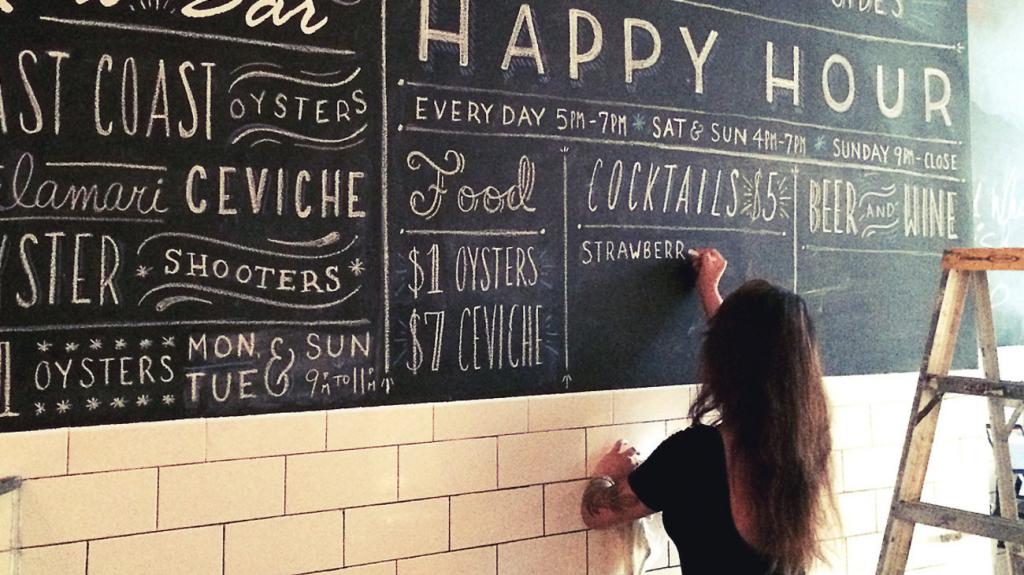 Bar
EAST COAST OYSTERS
Calamari CEVICHE
OYSTER * SHOOTERS *
OYSTERS MON. TUE & SUN 9PM TO 11PM
SIDES
HAPPY HOUR
EVERY DAY 5PM-7PM * SAT & SUN 4PM-7PM * SUNDAY 9PM-CLOSE
Food
$1 OYSTERS
$7 CEVICHE
COCKTAILS $5
STRAWBERR
BEER AND WINE